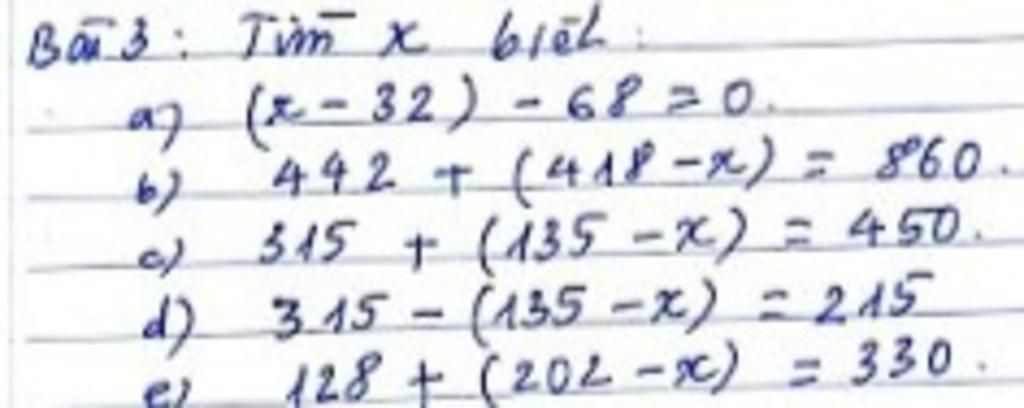 Bài 3: Tìm x biết:
a) (x - 32) - 68 = 0.
b) 442 + (418 - x) = 860.
c) 315 + (135 - x) = 450.
d) 315 - (135 - x) = 215
e) 128 + (202 - x) = 330.